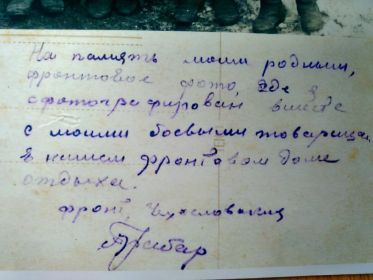 На память моим родным,
фронтовое фото, где я
сфотографирован вместе
с моими боевыми товарищами
в нашем фронтовом доме
отдыха.
фронт, Чехословакия